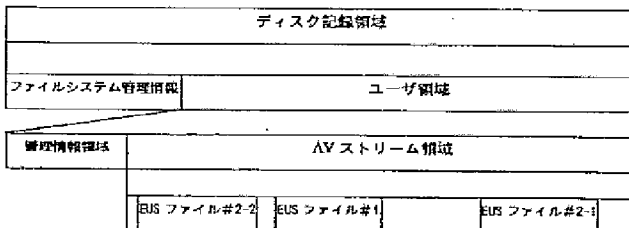 ディスク記録領域
ファイルシステム管理情報 ユーザ領域
管理情報領域 AV ストリーム領域
EUS ファイル#2-2 EUS ファイル#1 EUS ファイル#2-1